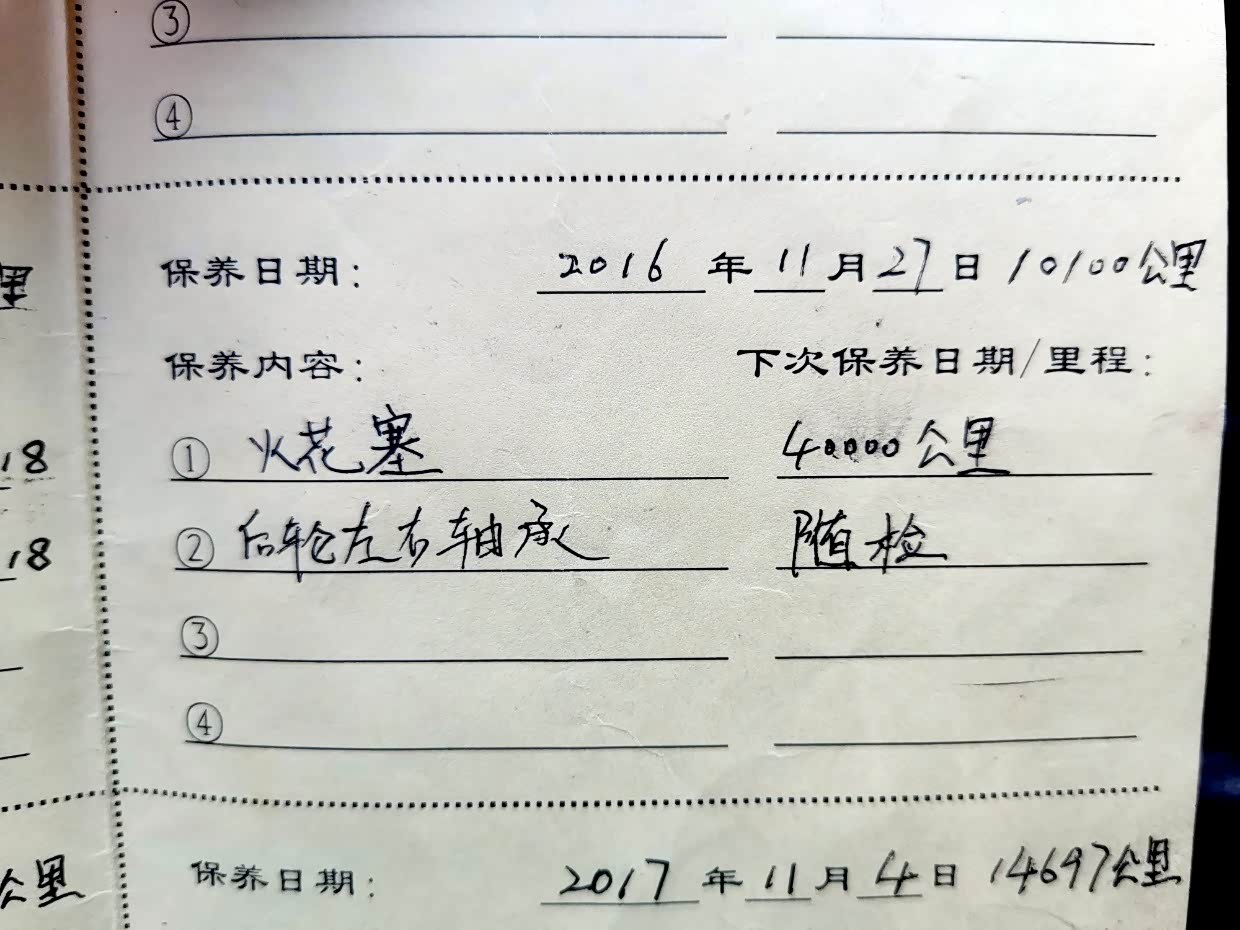 ③
④
保养日期: 2016 年 11 月 27 日 10100公里
保养内容: 下次保养日期/里程:
① 火花塞 40000公里
② 后轮左右轴承 随检
③
④
保养日期: 2017 年 11 月 4 日 14697公里
里
18
18
公里